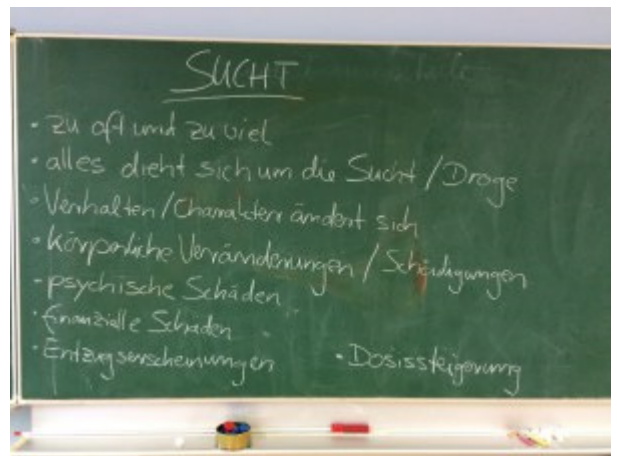 SUCHT
• zu oft und zu viel
• alles dreht sich um die Sucht / Droge
• Verhalten / Charakter ändert sich
• körperliche Veränderungen / Schädigungen
- psychische Schäden
• finanzielle Schäden
• Entzugserscheinungen
• Dosissteigerung